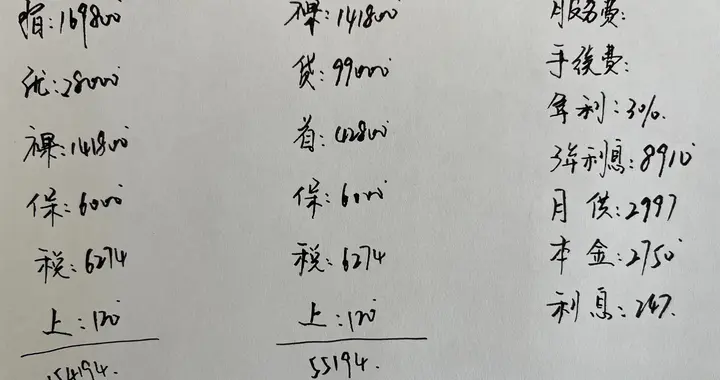 指:169800
优:28000
裸:141800
保:6000
税:6274
上:120
154194.
裸:141800
贷:99000
首:42800
保:6000
税:6274
上:120
55194.
服务费:
手续费:
年利:3%.
3年利息:8910
月供:2997
本金:2750
利息:247.